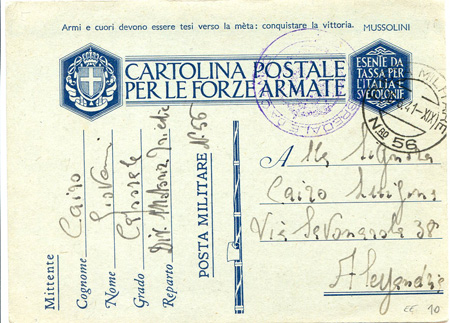 Armi e cuori devono essere tesi verso la mèta: conquistare la vittoria. MUSSOLINI
CARTOLINA POSTALE
PER LE FORZE ARMATE
ESENTE DA
TASSA PER
L'ITALIA E
SVE COLONIE
MILITARE
41-XIX
NRO 56
OSPEDALE
Mittente
Cognome Cairo
Nome Giovanni
Grado
Reparto Div. Motoriz Trieste
POSTA MILITARE N. 56
A lla Signora
Cairo
Via Savonarola 38
Alessandria
EE 10